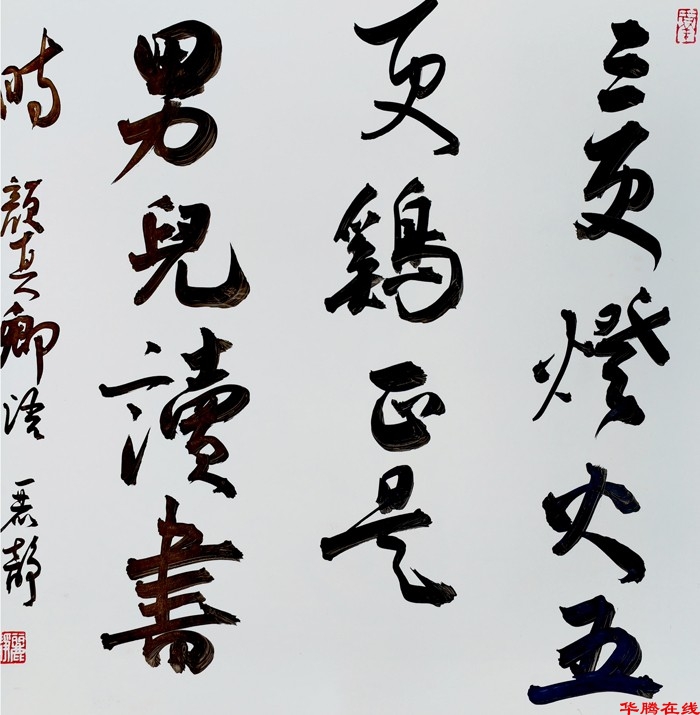 三更燈火五
更鷄正是
男兒讀書
時 顔真卿语 麗静
华腾在线